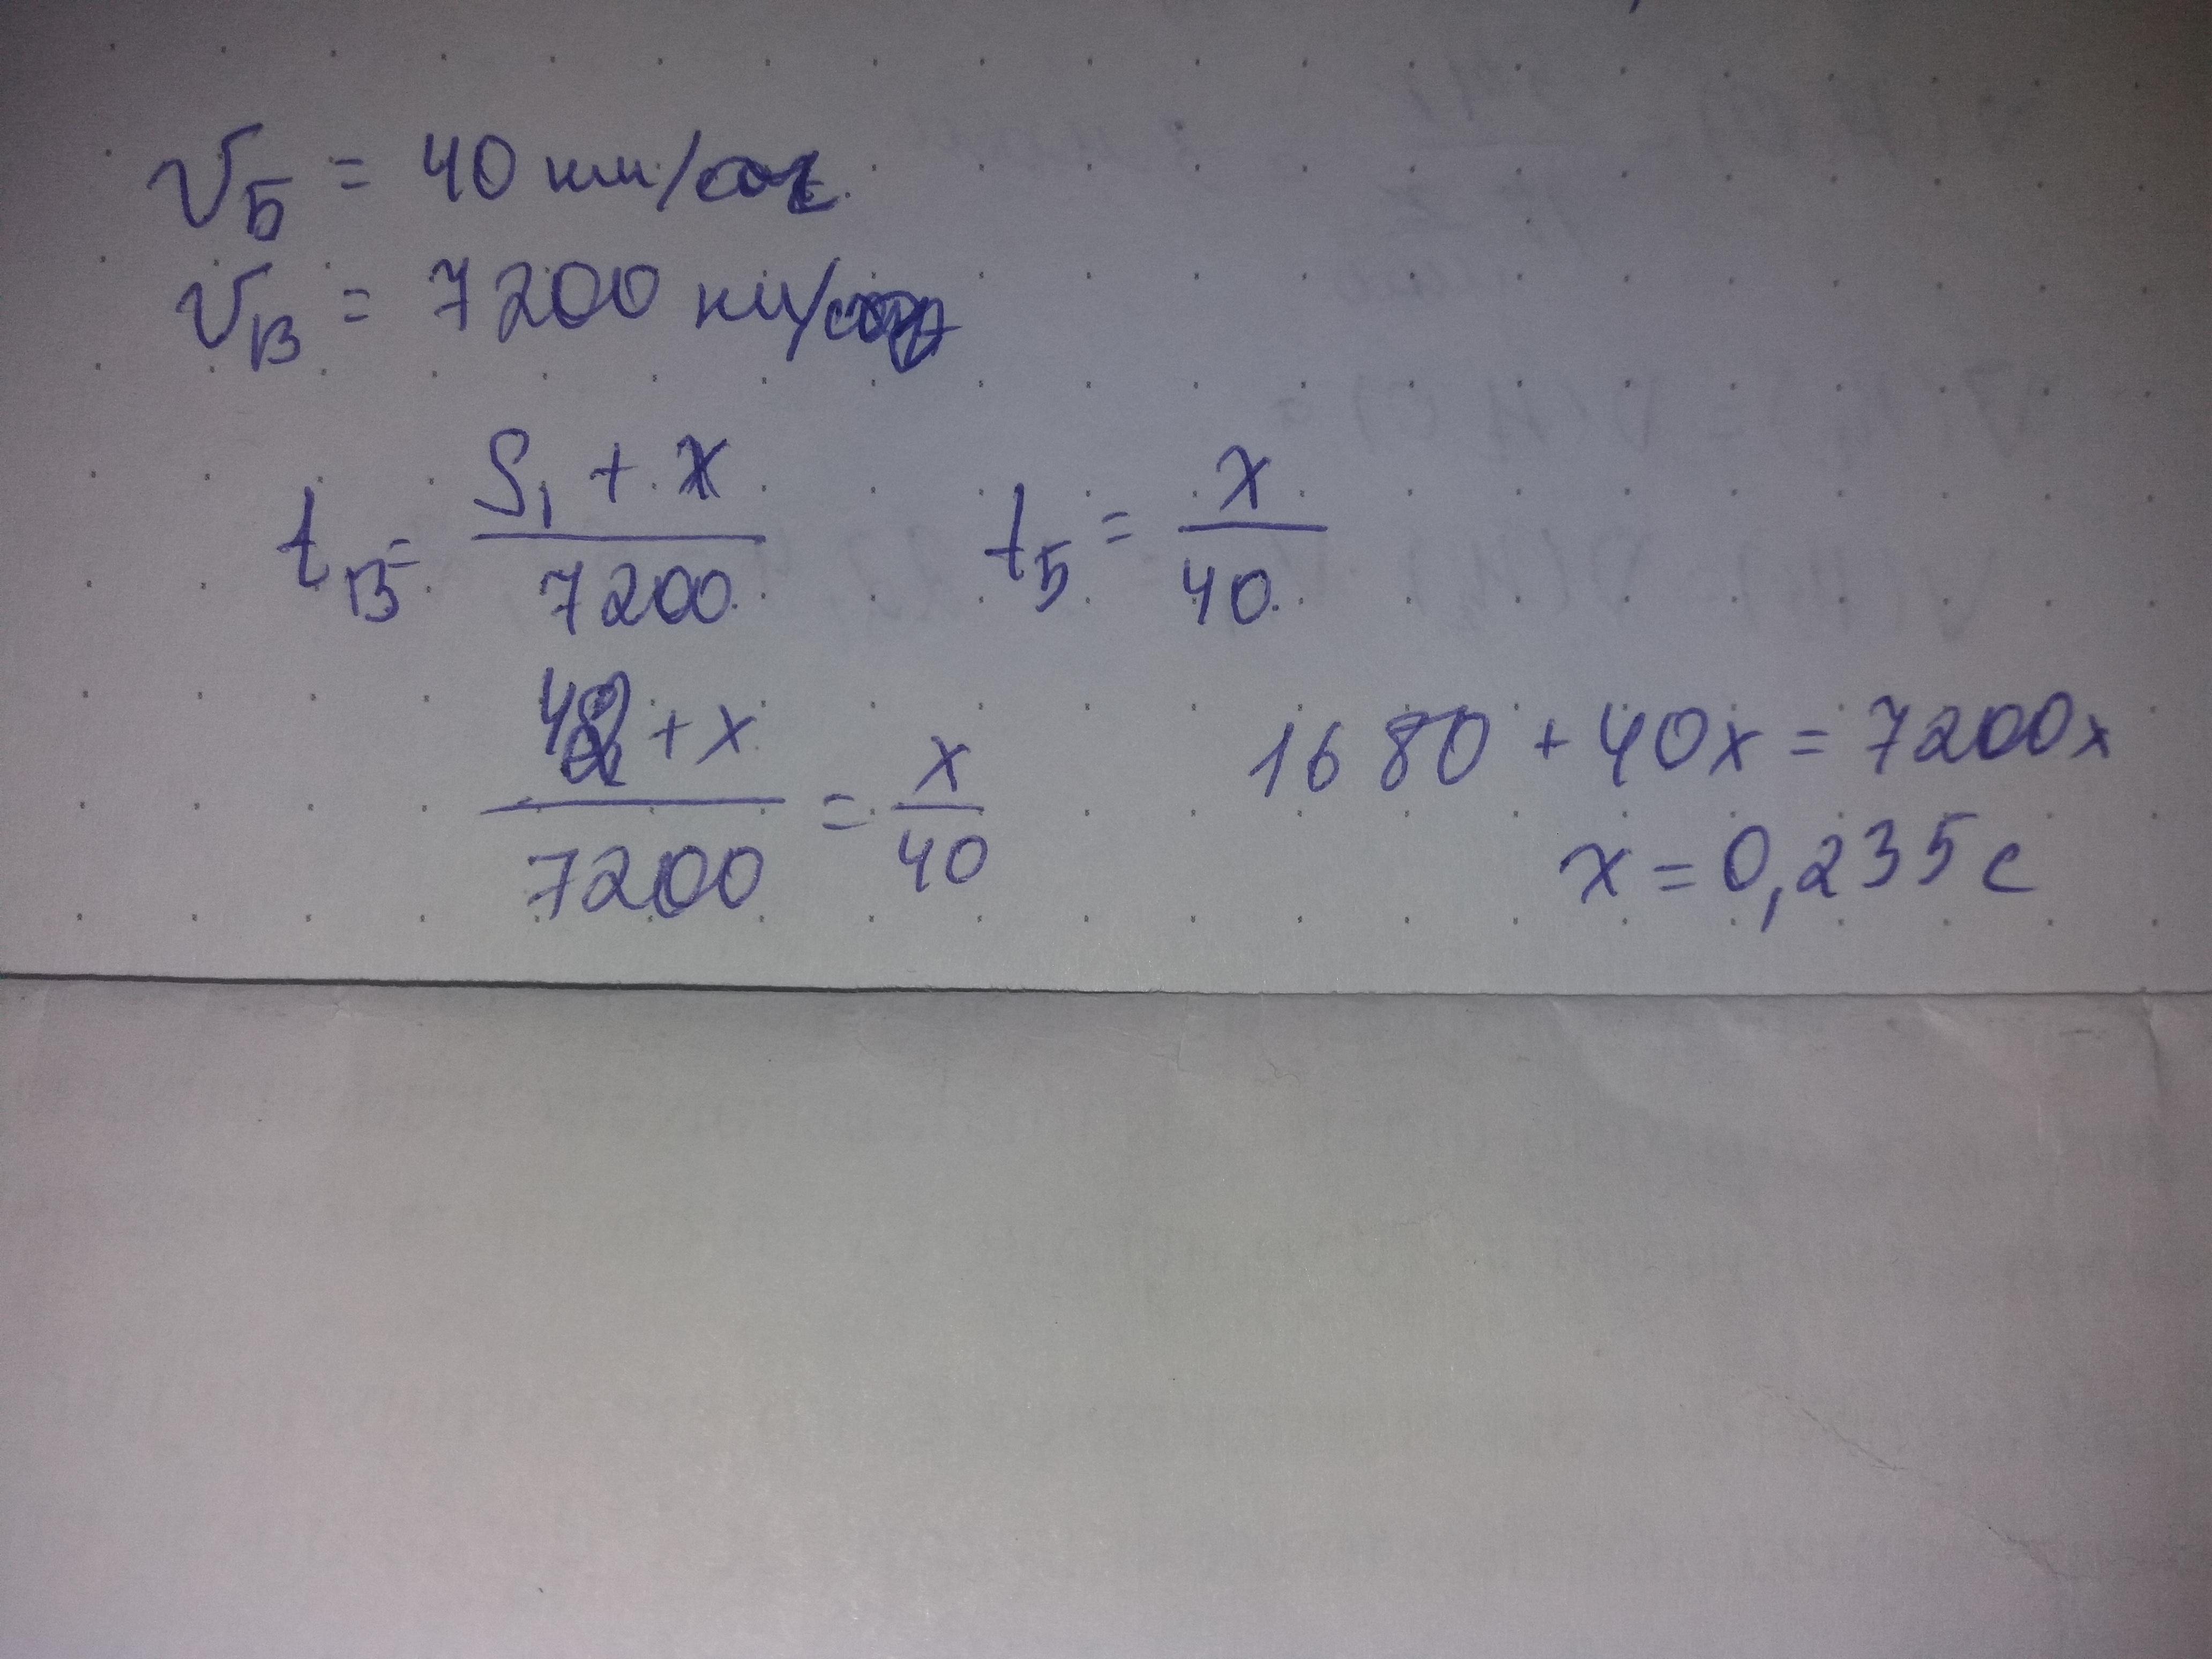 v_Б = 40 км/
v_В = 7200 км/
t_В = (S₁ + x)/7200 t_Б = x/40
(42 + x)/7200 = x/40 1680 + 40x = 7200x
x = 0,235 с